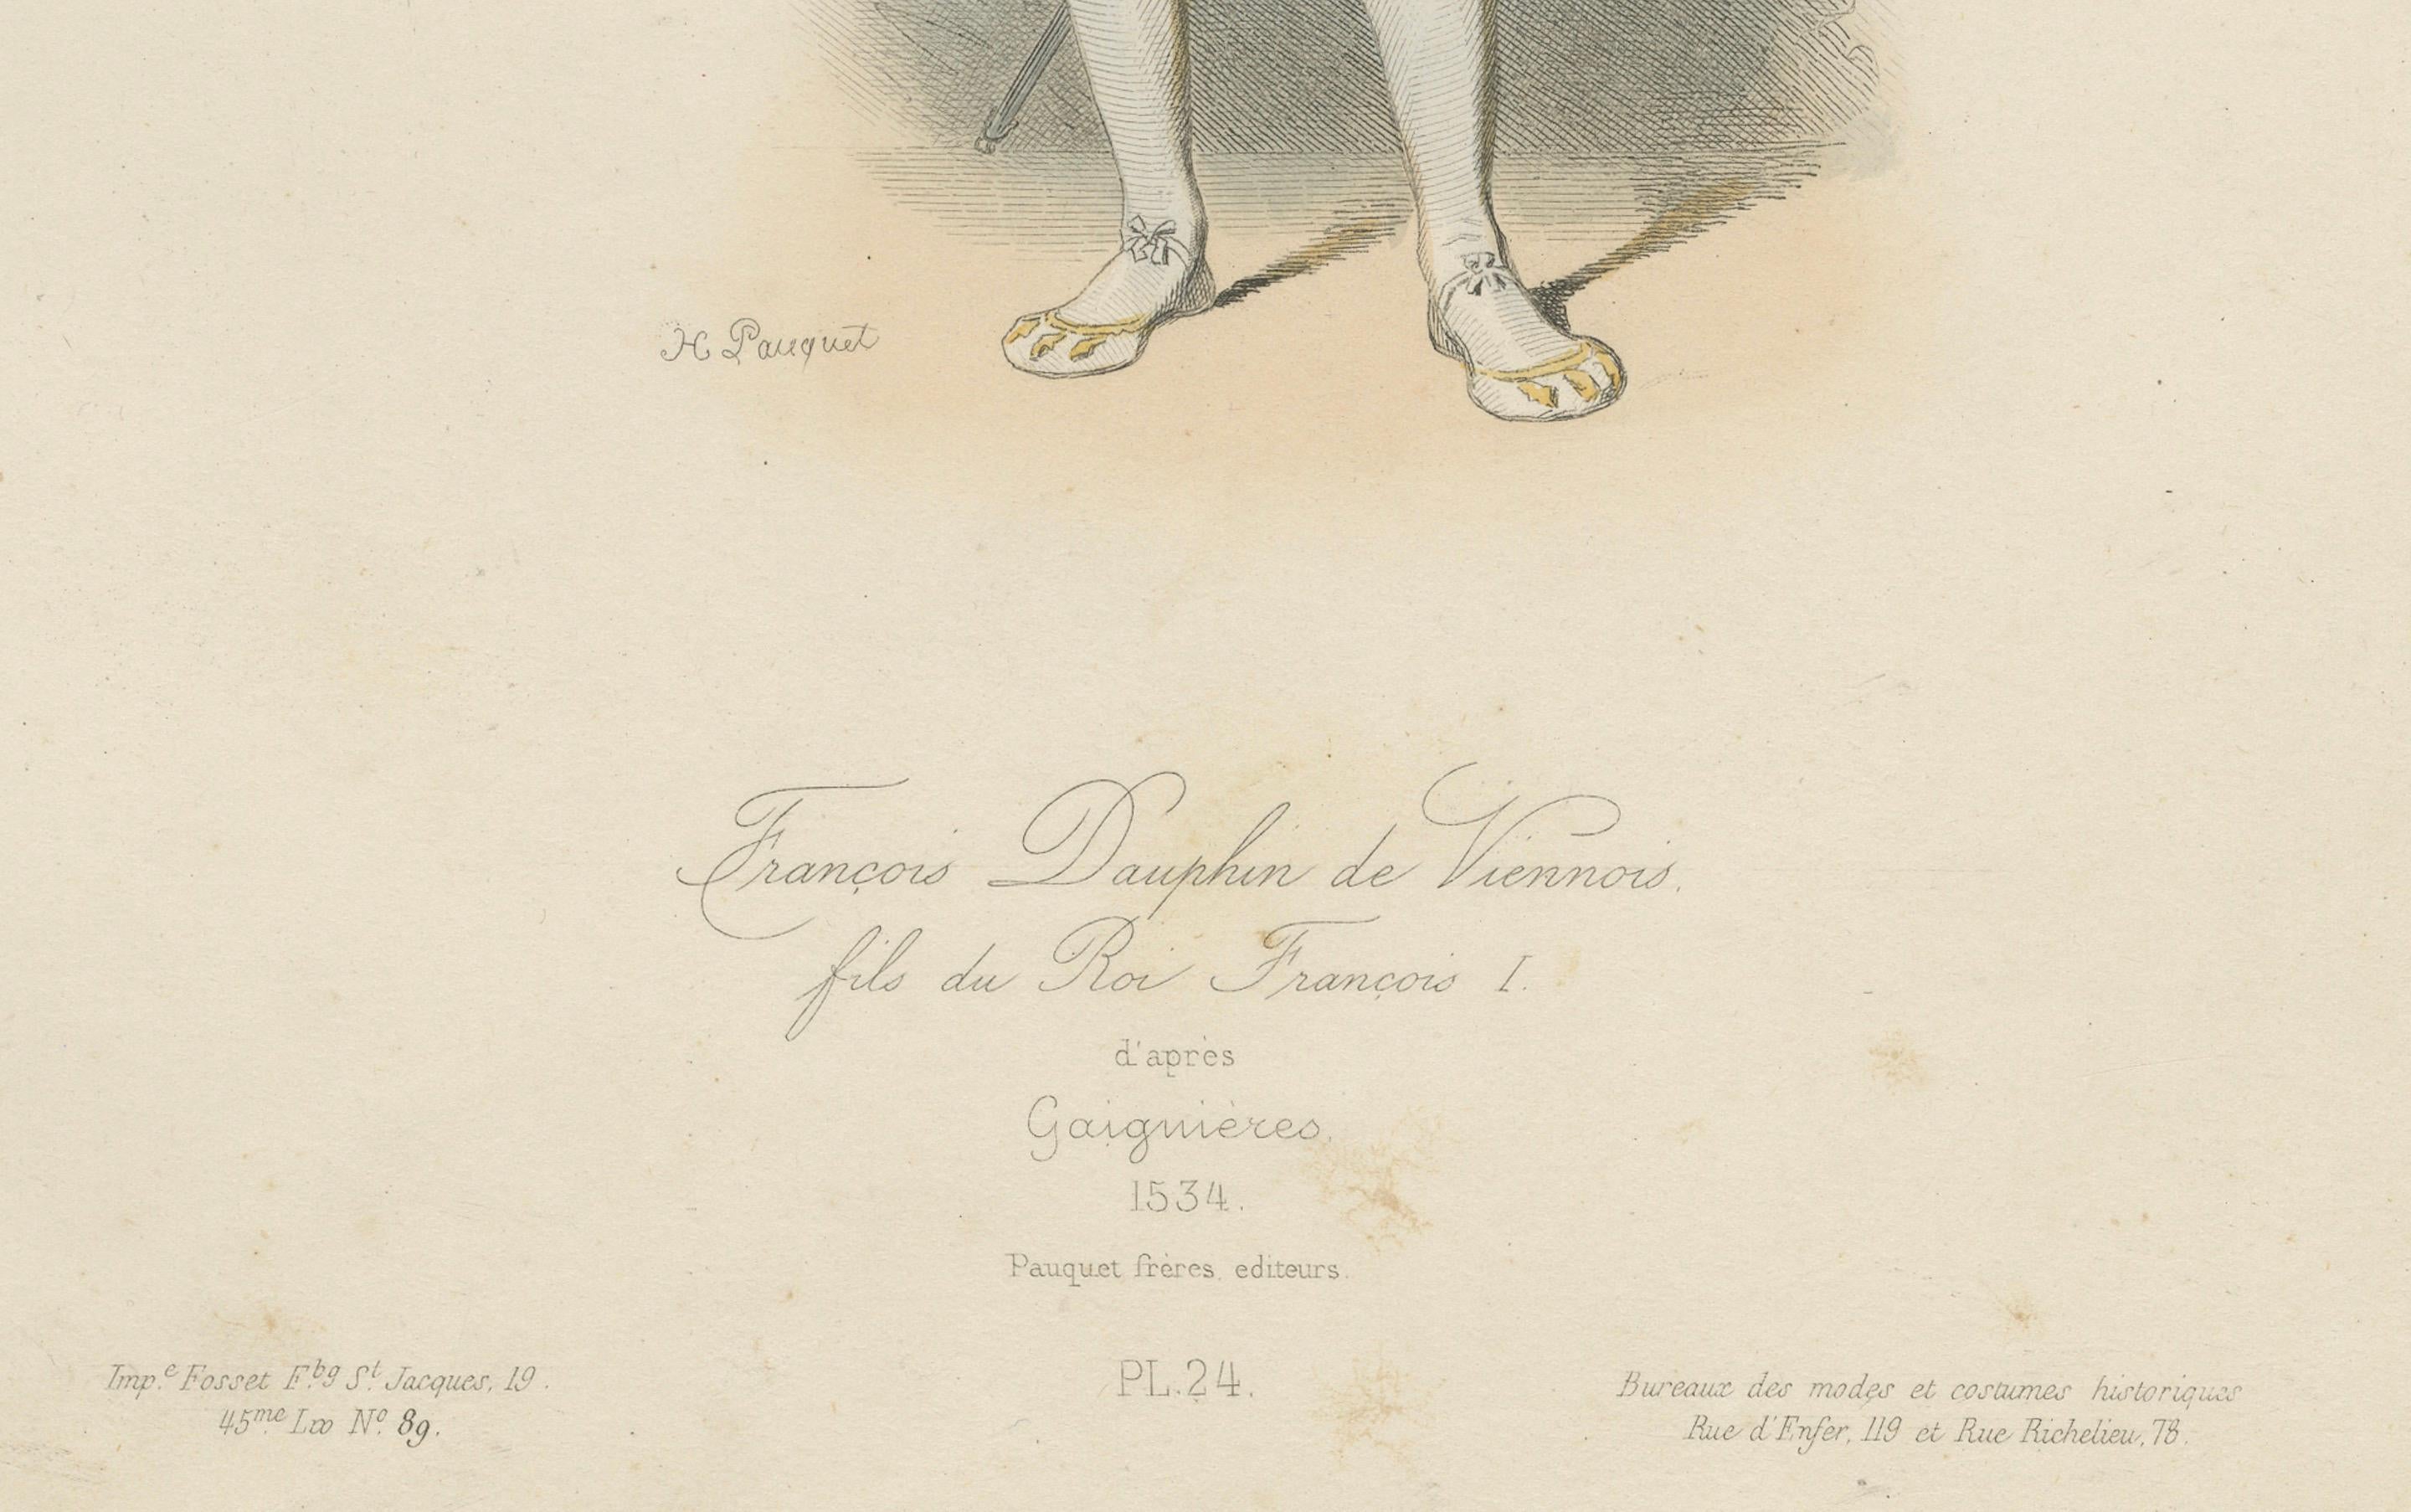 H Pauquet
François Dauphin de Viennois.
fils du Roi François I.
d'après
Gaignières.
1534.
Pauquet frères, editeurs.
Imp.e Fosset F.bg St. Jacques, 19.
PL.24.
Bureaux des modes et costumes historiques
45me. Lon No. 89.
Rue d'Enfer, 119 et Rue Richelieu, 78.